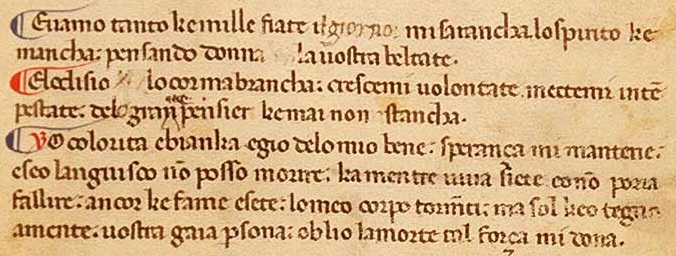 Euamo tanto ke mille fiate il giorno: mi sarancha lo spirito ke
mancha: pensando donna la uostra beltate.
Elodisio lo cor mabrancha: crescemi uolontate. mettemi intē
pestate: delo gran pensier ke mai non stancha.
VO colorita e bianka e gio delo mio bene: sperança mi mantene:
e seo languisco nō posso morire: ka mentre uiua siete eo nō poria
fallire: ancor ke fame e sete: lo meo corpo tormēti: ma sol keo tegna
amente: uostra gaia psona: oblio la morte tal força mi dona.